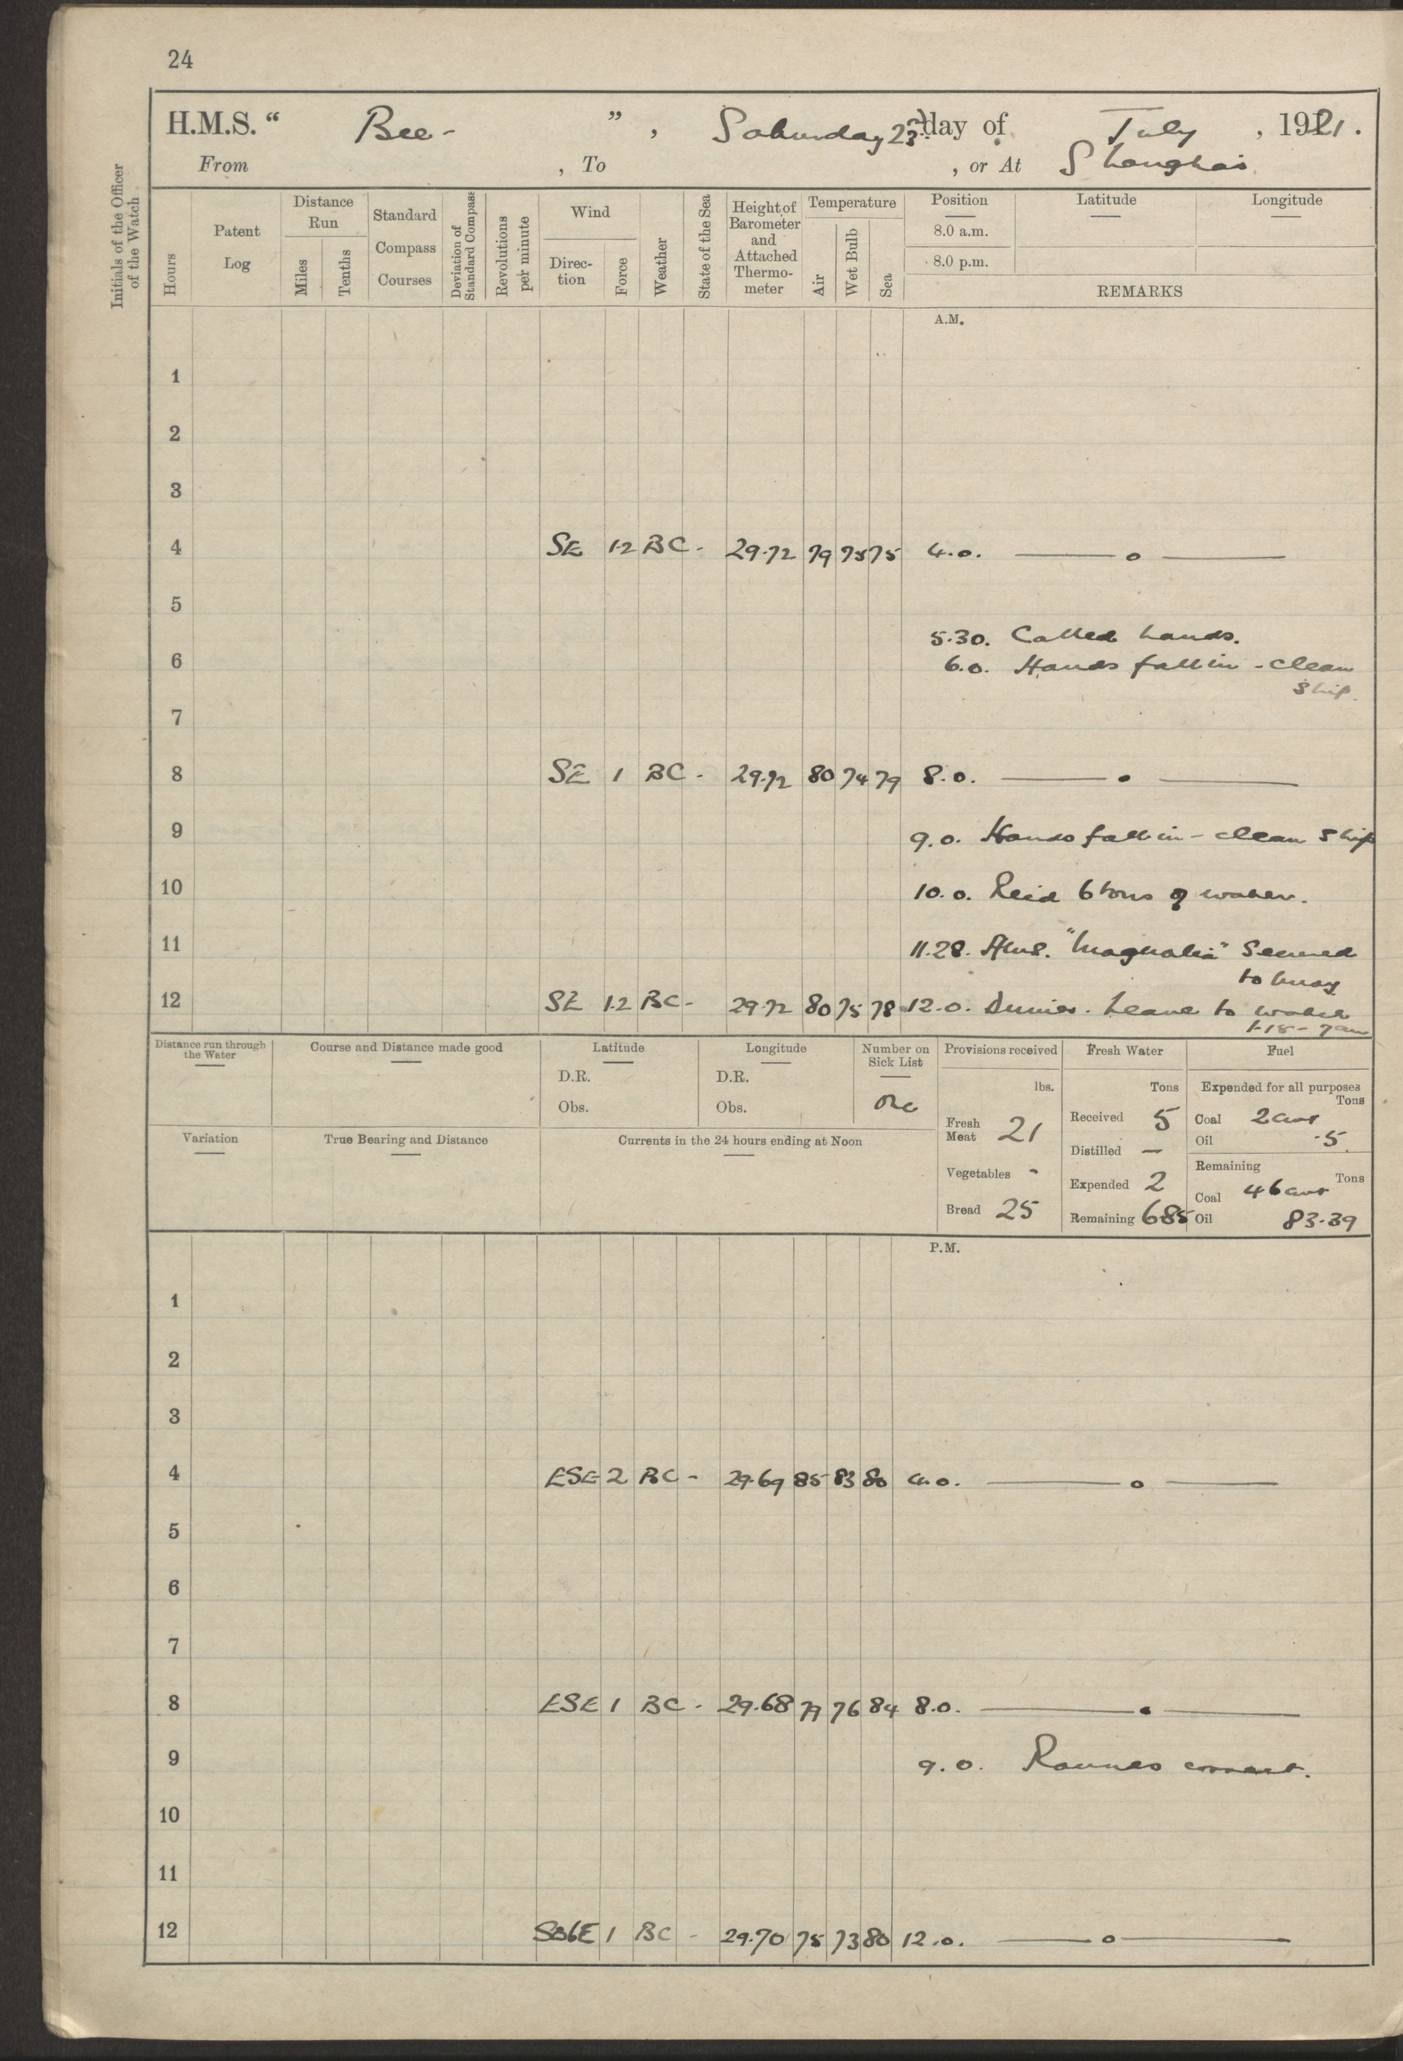 24
H.M.S. “ Bee - ” , Saturday 23rd day of July , 1921 .
From , To , or At Shanghai
Initials of the Officer of the Watch
Hours
Patent Log
Distance Run
Miles
Tenths
Standard Compass Courses
Deviation of Standard Compass
Revolutions per minute
Wind
Direc-tion
Force
Weather
State of the Sea
Height of Barometer and Attached Thermo-meter
Temperature
Air
Wet Bulb
Sea
Position
8.0 a.m.
8.0 p.m.
Latitude
Longitude
REMARKS
A.M.
1
2
3
4 SE 1·2 BC - 29·72 79 75 75 4.0. — o —
5
5·30. Called hands.
6 6.0. Hands fall in - clean
ship.
7
8 SE 1 BC - 29·72 80 74 79 8.0. — • —
9 9.0. Hands fall in - clean ship
10 10.0. Recd 6 tons of water.
11 11.28. Hms. "Magnolia" Secured
to buoy
12 SE 1·2 BC - 29·72 80 75 78 12.0. Dinner. Leave to watch
1·15 - 7am
Distance run through the Water
Course and Distance made good
Latitude
D.R.
Obs.
Longitude
D.R.
Obs.
Number on Sick List
one
Provisions received
lbs.
Fresh Meat 21
Vegetables -
Bread 25
Fresh Water
Tons
Received 5
Distilled —
Expended 2
Remaining 685
Fuel
Expended for all purposes
Tons
Coal 2 cwt
Oil ·5.
Remaining
Tons
Coal 46 cwt
Oil 83·39
Variation
True Bearing and Distance
Currents in the 24 hours ending at Noon
P.M.
1
2
3
4 ESE 2 BC - 29·69 85 83 80 4.0. — o —
5
6
7
8 ESE 1 BC - 29·68 79 76 84 8.0. — • —
9 9.0. Rounds correct.
10
11
12 SbE 1 BC - 29·70 75 73 80 12.0. — o —